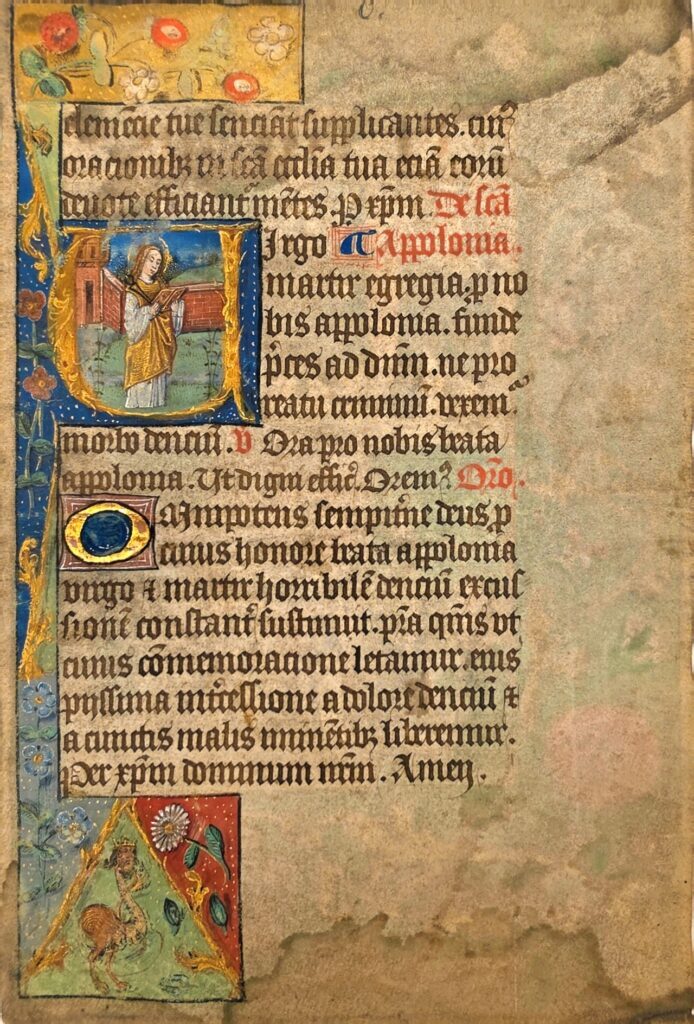 clemẽcie tue senciãt supplicantes. cuiꝰ
oracionibꝫ in scã ecclia tua eciã eorũ
deuote efficiant᷑ mẽtes. P xp̃m. De scã
Virgo Appolonia.
martir egregia. ꝓ no
bis appolonia. funde
p̃ces ad dñm. ne pro
reatu criminũ. vexem᷑
morbo denciũ. V Ora pro nobis beata
appolonia. Ut digni effic᷑. Oremꝰ. Oro.
Omnipotens sempit᷑ne deus, ꝓ
cuius honore beata appolonia
virgo ⁊ martir horribilẽ denciũ excus
sionẽ constant᷑ sustinuit. pr̃a qm̃s vt
cuius cõmemoracione letamur. eius
pijssima int᷑cessione a dolore denciũ ⁊
a cunctis malis iminẽtibꝫ liberemur.
Per xp̃m dominum nr̃m. Amen.